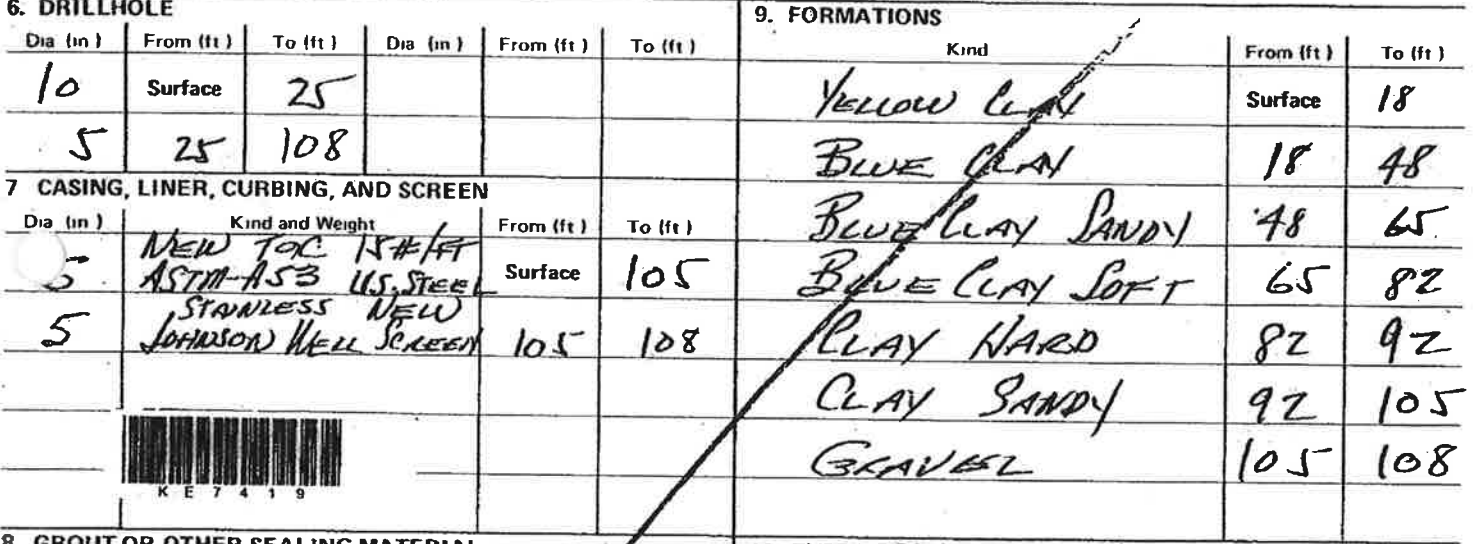 6. DRILLHOLE
Dia (in) From (ft) To (ft) Dia (in) From (ft) To (ft)
10 Surface 25
5 25 108
7 CASING, LINER, CURBING, AND SCREEN
Dia (in) Kind and Weight From (ft) To (ft)
NEW T&C 15#/FT
5 ASTM-A53 U.S. STEEL Surface 105
STAINLESS NEW
5 JOHNSON WELL SCREEN 105 108
KE7419
8 GROUT OR OTHER SEALING MATERIAL
9. FORMATIONS
Kind From (ft) To (ft)
YELLOW CLAY Surface 18
BLUE CLAY 18 48
BLUE CLAY SANDY 48 65
BLUE CLAY SOFT 65 82
CLAY HARD 82 92
CLAY SANDY 92 105
GRAVEL 105 108